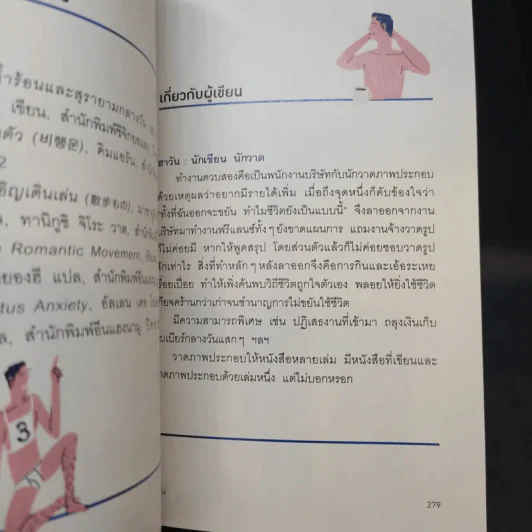 ร้อนและสุรายามกลางวัน
เขียน, สำนักพิมพ์
ตัว (비행운), คิมแอรัน,
2
เดินเล่น (散歩もの),
ทานิกุชิ จิโระ วาด,
Romantic Movement,
ยองฮี แปล, สำนักพิมพ์
tus Anxiety, อัลเลน เดอ
สำนักพิมพ์อึนแฮงนามู,
3
เกี่ยวกับผู้เขียน
ฮาวัน : นักเขียน นักวาด
ทำงานควบสองคือเป็นพนักงานบริษัทกับนักวาดภาพประกอบ
ด้วยเหตุผลว่าอยากมีรายได้เพิ่ม เมื่อถึงจุดหนึ่งก็คับข้องใจว่า
ทั้งที่ฉันออกจะขยัน ทำไมชีวิตยังเป็นแบบนี้" จึงลาออกจากงาน
บริษัทมาทำงานฟรีแลนซ์ทั้งๆ ยังขาดแผนการ แถมงานจ้างวาดรูป
ก็ไม่ค่อยมี หากให้พูดสรุป โดยส่วนตัวแล้วก็ไม่ค่อยชอบวาดรูป
เท่าไร สิ่งที่ทำหลักๆ หลังลาออกจึงคือการกินและเอ้อระเหย
เรื่อยเปื่อย ทำให้เพิ่งค้นพบวิถีชีวิตถูกใจตัวเอง พลอยให้ยิ่งใช้ชีวิต
เกียจคร้านกว่าเก่าจนชำนาญการไม่ขยันใช้ชีวิต
มีความสามารถพิเศษ เช่น ปฏิเสธงานที่เข้ามา ถลุงเงินเก็บ
เบียร์กลางวันแสกๆ ฯลฯ
วาดภาพประกอบให้หนังสือหลายเล่ม มีหนังสือที่เขียนและ
วาดภาพประกอบด้วยเล่มหนึ่ง แต่ไม่บอกหรอก
279